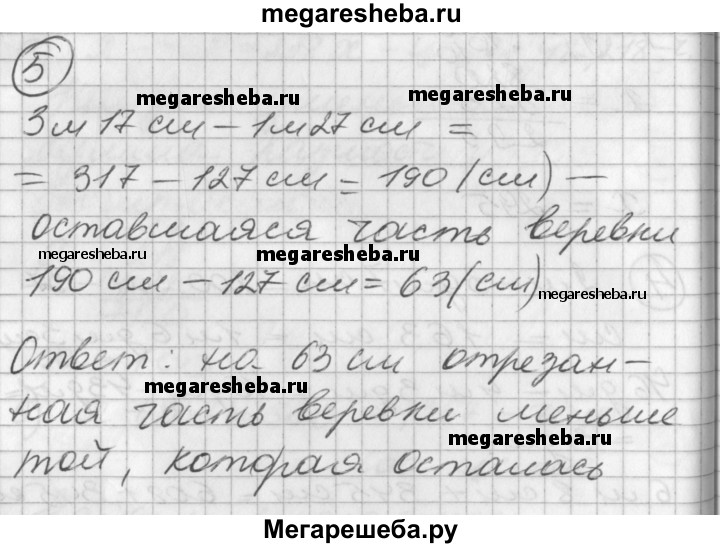 megaresheba.ru
5
megaresheba.ru
megaresheba.ru
3м 17 см – 1м 27 см =
= 317 – 127 см = 190 (см) –
оставшаяся часть веревки
megaresheba.ru
megaresheba.ru
190 см – 127 см = 63 (см)
megaresheba.ru
Ответ: на 63 см отрезан-
megaresheba.ru
ная часть веревки меньше
megaresheba.ru
той, которая осталась
Мегарешеба.ру